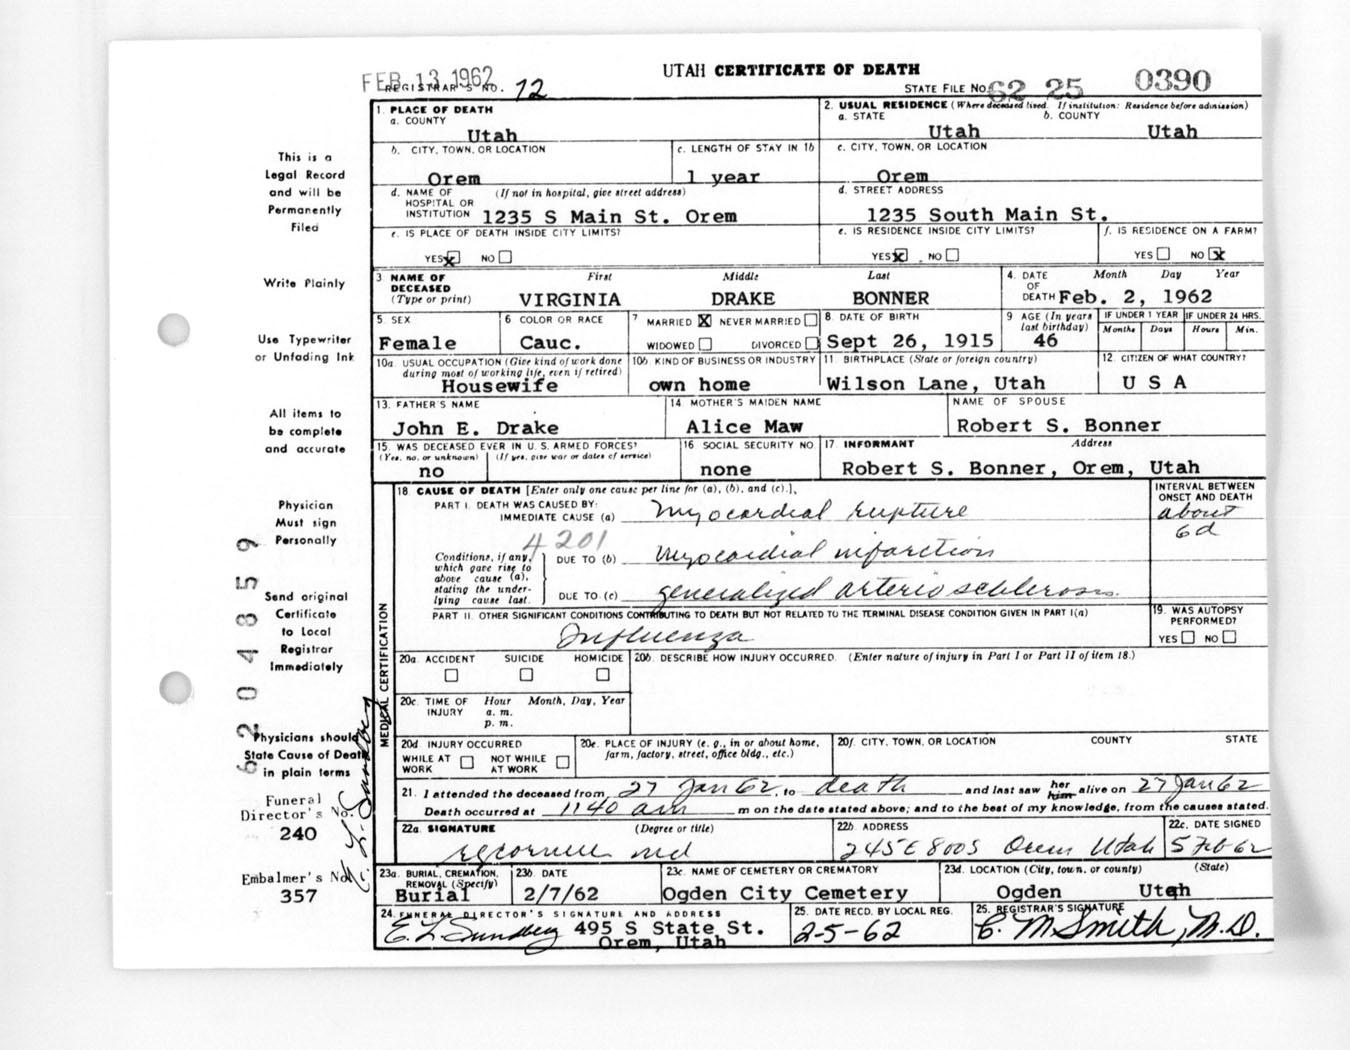 FEB 13 1962
UTAH CERTIFICATE OF DEATH
REGISTRAR'S NO. 12
STATE FILE NO. 62 25 0390
1. PLACE OF DEATH
a. COUNTY
Utah
2. USUAL RESIDENCE (Where deceased lived. If institution: Residence before admission)
a. STATE b. COUNTY
Utah Utah
b. CITY, TOWN, OR LOCATION
Orem
c. LENGTH OF STAY IN 1b
1 year
c. CITY, TOWN, OR LOCATION
Orem
d. NAME OF (If not in hospital, give street address)
HOSPITAL OR
INSTITUTION 1235 S Main St. Orem
d. STREET ADDRESS
1235 South Main St.
e. IS PLACE OF DEATH INSIDE CITY LIMITS?
YES x NO
e. IS RESIDENCE INSIDE CITY LIMITS?
YES x NO
f. IS RESIDENCE ON A FARM?
YES NO x
3 NAME OF DECEASED (Type or print)
First Middle Last
VIRGINIA DRAKE BONNER
4. DATE OF DEATH Month Day Year
Feb. 2, 1962
5. SEX
Female
6 COLOR OR RACE
Cauc.
7 MARRIED X NEVER MARRIED
WIDOWED DIVORCED
8. DATE OF BIRTH
Sept 26, 1915
9 AGE (In years last birthday)
46
IF UNDER 1 YEAR IF UNDER 24 HRS.
Months Days Hours Min.
10a. USUAL OCCUPATION (Give kind of work done
during most of working life, even if retired)
Housewife
10b. KIND OF BUSINESS OR INDUSTRY
own home
11. BIRTHPLACE (State or foreign country)
Wilson Lane, Utah
12. CITIZEN OF WHAT COUNTRY?
U S A
13. FATHER'S NAME
John E. Drake
14. MOTHER'S MAIDEN NAME
Alice Maw
NAME OF SPOUSE
Robert S. Bonner
15. WAS DECEASED EVER IN U. S. ARMED FORCES?
(Yes, no, or unknown) (If yes, give war or dates of service)
no
16 SOCIAL SECURITY NO.
none
17. INFORMANT Address
Robert S. Bonner, Orem, Utah
MEDICAL CERTIFICATION
18. CAUSE OF DEATH [Enter only one cause per line for (a), (b), and (c).],
INTERVAL BETWEEN
ONSET AND DEATH
PART I. DEATH WAS CAUSED BY:
IMMEDIATE CAUSE (a) myocardial rupture
about
6d
4201
Conditions, if any,
which gave rise to
above cause (a),
stating the under-
lying cause last.
DUE TO (b) myocardial infarction
DUE TO (c) generalized arteriosclerosis.
PART II. OTHER SIGNIFICANT CONDITIONS CONTRIBUTING TO DEATH BUT NOT RELATED TO THE TERMINAL DISEASE CONDITION GIVEN IN PART I(a)
Influenza
19. WAS AUTOPSY
PERFORMED?
YES NO
20a. ACCIDENT SUICIDE HOMICIDE
20b. DESCRIBE HOW INJURY OCCURRED. (Enter nature of injury in Part I or Part II of item 18.)
20c. TIME OF INJURY Hour Month, Day, Year
a. m.
p. m.
20d. INJURY OCCURRED
WHILE AT WORK NOT WHILE AT WORK
20e. PLACE OF INJURY (e. g., in or about home,
farm, factory, street, office bldg., etc.)
20f. CITY, TOWN, OR LOCATION COUNTY STATE
21. I attended the deceased from 27 Jan 62, to death and last saw her him alive on 27 Jan 62
Death occurred at 1140 am m on the date stated above; and to the best of my knowledge, from the causes stated.
22a. SIGNATURE (Degree or title)
md
22b. ADDRESS
245 E 800 S Orem Utah
22c. DATE SIGNED
5 Feb 62
23a. BURIAL, CREMATION,
REMOVAL (Specify)
Burial
23b. DATE
2/7/62
23c. NAME OF CEMETERY OR CREMATORY
Ogden City Cemetery
23d. LOCATION (City, town, or county) (State)
Ogden Utah
24. FUNERAL DIRECTOR'S SIGNATURE AND ADDRESS
E. L. Sundberg 495 S State St.
Orem, Utah
25. DATE RECD. BY LOCAL REG.
2-5-62
25. REGISTRAR'S SIGNATURE
C. M Smith, M.D.
This is a
Legal Record
and will be
Permanently
Filed
Write Plainly
Use Typewriter
or Unfading Ink
All items to
be complete
and accurate
Physician
Must sign
Personally
Send original
Certificate
to Local
Registrar
Immediately
Physicians should
State Cause of Death
in plain terms
Funeral
Director's No.
240
Embalmer's No.
357
E. L. Sundberg
6204859